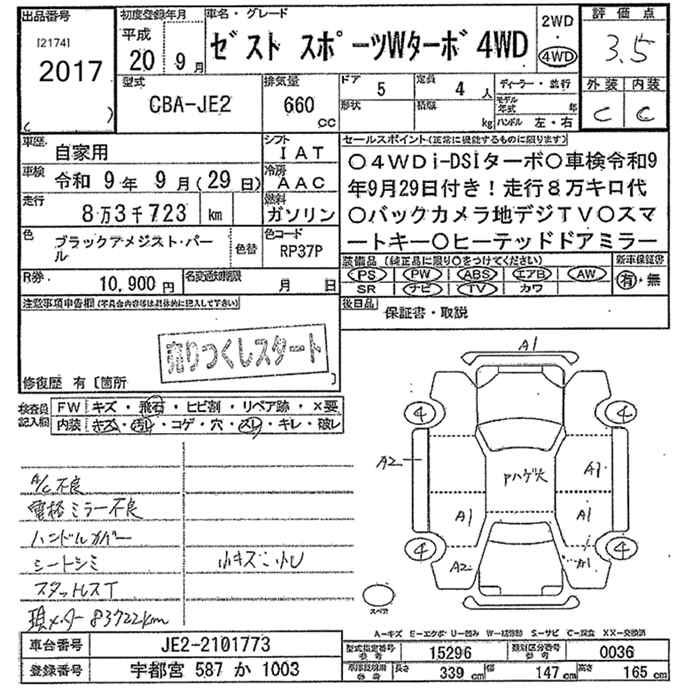 出品番号
[2174]
2017
初度登録年月
平成
20 9月
車名・グレード
ゼスト スポーツWターボ 4WD
2WD
4WD
評価点
3.5
外装 内装
C C
型式
CBA-JE2
排気量
660 cc
ドア
5
形状
定員
4 人
積載
kg
ディーラー・並行
モデル年式 年
ハンドル 左・右
車歴
自家用
車検
令和 9年 9月(29日)
走行
8万3千723 km
色
ブラックアメジスト・パール
色替
シフト
IAT
冷房
AAC
燃料
ガソリン
色コード
RP37P
R券
10,900円
名義変更期限
月 日
セールスポイント(正常に機能するものに限ります)
○4WDi-DSiターボ○車検令和9
年9月29日付き!走行8万キロ代
○バックカメラ地デジTV○スマ
ートキー○ヒーテッドドアミラー
装備品(純正品に限り○をつけてください)
PS PW ABS エアB AW
SR ナビ TV カワ
新車保証書
有・無
後日品
保証書・取説
注意事項申告欄(不具合内容等は具体的に記入して下さい)
売りつくしスタート
修復歴 有〔箇所
検査員記入欄
FW キズ・飛石・ヒビ割・リペア跡・X要
内装 キズ・汚れ・コゲ・穴・スレ・キレ・破レ
A/C不良
電格ミラー不良
ハンドルカバー
シートシミ
小キズ 小凹
スタッドレスT
現メーター 83722km
A1
4
4
A2
Pハゲ大
A1
A1
A1
A2
4
4
スペア
A-キズ E-エクボ U-凹み W-補修跡 S-サビ C-腐食 XX-交換済
車台番号
JE2-2101773
登録番号
宇都宮 587 か 1003
型式指定番号 参考
15296
類別区分番号 参考
0036
長さ
339 cm
幅
147 cm
高さ
165 cm